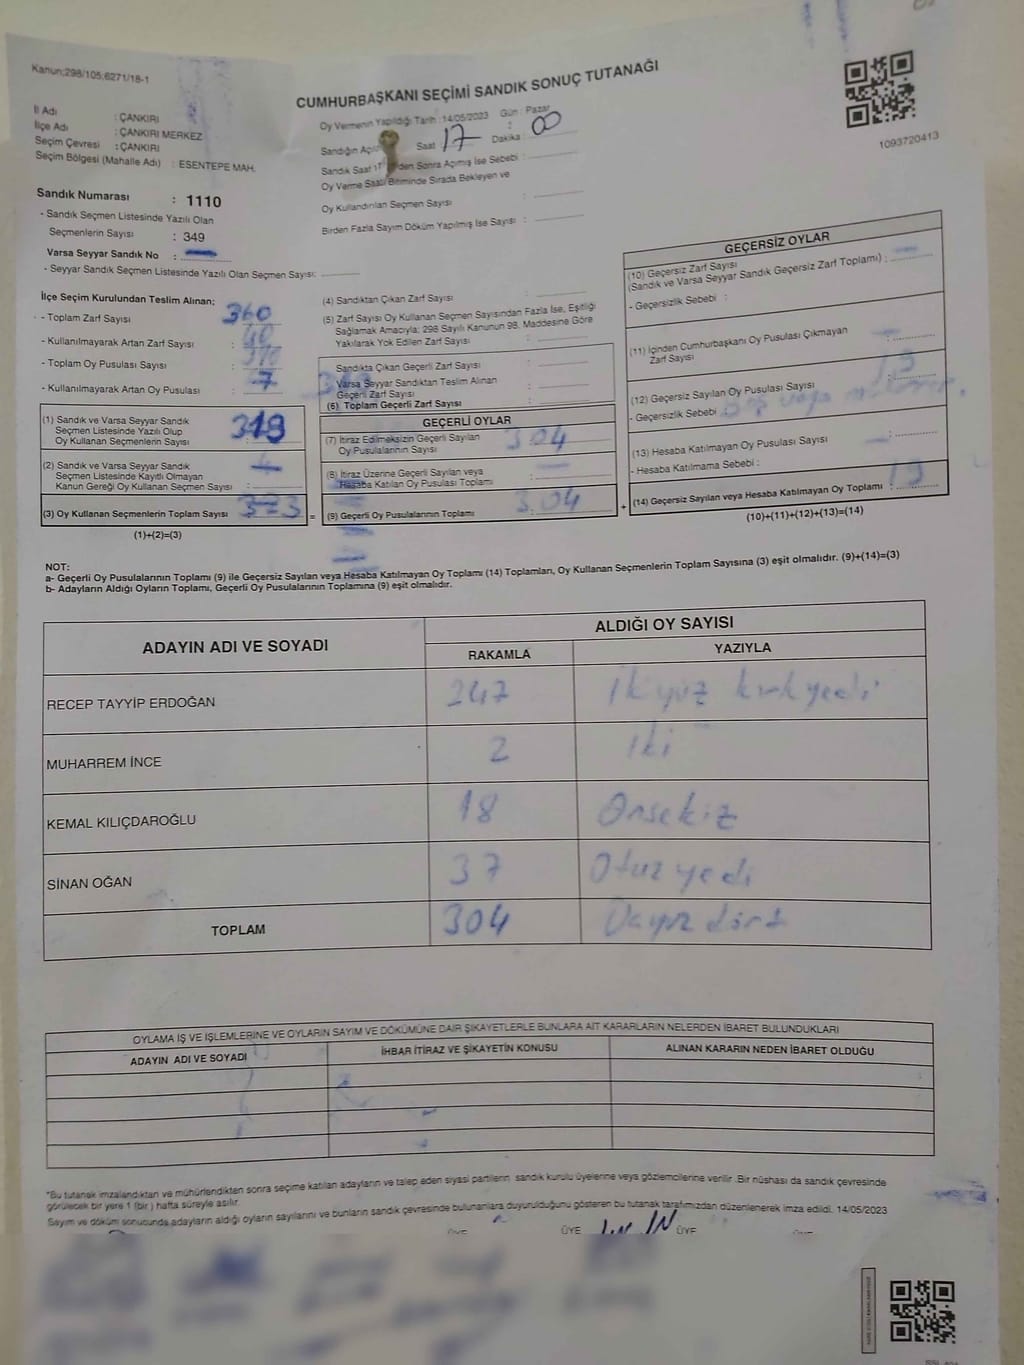 Kanun;298/105;6271/18-1
CUMHURBAŞKANI SEÇİMİ SANDIK SONUÇ TUTANAĞI
1093720413
İl Adı : ÇANKIRI
İlçe Adı : ÇANKIRI MERKEZ
Seçim Çevresi : ÇANKIRI
Seçim Bölgesi (Mahalle Adı) : ESENTEPE MAH.
Oy Vermenin Yapıldığı Tarih :14/05/2023 Gün : Pazar
Sandığın Saat 17 Dakika : 00
Sandık Saat Sonra Açılmış İse Sebebi :
Oy Verme Saati Bitiminde Sırada Bekleyen ve
Oy Kullandırılan Seçmen Sayısı :
Birden Fazla Sayım Döküm Yapılmış İse Sayısı :
Sandık Numarası : 1110
- Sandık Seçmen Listesinde Yazılı Olan
Seçmenlerin Sayısı : 349
Varsa Seyyar Sandık No :
- Seyyar Sandık Seçmen Listesinde Yazılı Olan Seçmen Sayısı:
İlçe Seçim Kurulundan Teslim Alınan;
- Toplam Zarf Sayısı : 360
- Kullanılmayarak Artan Zarf Sayısı :
- Toplam Oy Pusulası Sayısı :
- Kullanılmayarak Artan Oy Pusulası :
(1) Sandık ve Varsa Seyyar Sandık
Seçmen Listesinde Yazılı Olup
Oy Kullanan Seçmenlerin Sayısı :
(2) Sandık ve Varsa Seyyar Sandık
Seçmen Listesinde Kayıtlı Olmayan
Kanun Gereği Oy Kullanan Seçmen Sayısı :
(3) Oy Kullanan Seçmenlerin Toplam Sayısı
(1)+(2)=(3)
(4) Sandıktan Çıkan Zarf Sayısı :
(5) Zarf Sayısı Oy Kullanan Seçmen Sayısından Fazla İse, Eşitliği
Sağlamak Amacıyla; 298 Sayılı Kanunun 98. Maddesine Göre
Yakılarak Yok Edilen Zarf Sayısı :
Sandıkta Çıkan Geçerli Zarf Sayısı :
Varsa Seyyar Sandıktan Teslim Alınan
Geçerli Zarf Sayısı :
(6) Toplam Geçerli Zarf Sayısı :
GEÇERLİ OYLAR
(7) İtiraz Edilmeksizin Geçerli Sayılan
Oy Pusulalarının Sayısı : 304
(8) İtiraz Üzerine Geçerli Sayılan veya
Hesaba Katılan Oy Pusulası Toplamı :
= (9) Geçerli Oy Pusulalarının Toplamı : 304 +
GEÇERSİZ OYLAR
(10) Geçersiz Zarf Sayısı
(Sandık ve Varsa Seyyar Sandık Geçersiz Zarf Toplamı) :
- Geçersizlik Sebebi :
(11) İçinden Cumhurbaşkanı Oy Pusulası Çıkmayan
Zarf Sayısı :
(12) Geçersiz Sayılan Oy Pusulası Sayısı : 19
- Geçersizlik Sebebi :
(13) Hesaba Katılmayan Oy Pusulası Sayısı :
- Hesaba Katılmama Sebebi :
(14) Geçersiz Sayılan veya Hesaba Katılmayan Oy Toplamı : 19
(10)+(11)+(12)+(13)=(14)
NOT:
a- Geçerli Oy Pusulalarının Toplamı (9) ile Geçersiz Sayılan veya Hesaba Katılmayan Oy Toplamı (14) Toplamları, Oy Kullanan Seçmenlerin Toplam Sayısına (3) eşit olmalıdır. (9)+(14)=(3)
b- Adayların Aldığı Oyların Toplamı, Geçerli Oy Pusulalarının Toplamına (9) eşit olmalıdır.
ADAYIN ADI VE SOYADI ALDIĞI OY SAYISI
RAKAMLA YAZIYLA
RECEP TAYYİP ERDOĞAN 247 İkiyüz kırkyedi
MUHARREM İNCE 2 İki
KEMAL KILIÇDAROĞLU 18 Onsekiz
SİNAN OĞAN 37 Otuzyedi
TOPLAM 304 Üçyüz dört
OYLAMA İŞ VE İŞLEMLERİNE VE OYLARIN SAYIM VE DÖKÜMÜNE DAİR ŞİKAYETLERLE BUNLARA AİT KARARLARIN NELERDEN İBARET BULUNDUKLARI
ADAYIN ADI VE SOYADI İHBAR İTİRAZ VE ŞİKAYETİN KONUSU ALINAN KARARIN NEDEN İBARET OLDUĞU
*Bu tutanak imzalandıktan ve mühürlendikten sonra seçime katılan adayların ve talep eden siyasi partilerin sandık kurulu üyelerine veya gözlemcilerine verilir .Bir nüshası da sandık çevresinde
görülecek bir yere 1 (bir ) hafta süreyle asılır.
Sayım ve döküm sonucunda adayların aldığı oyların sayılarını ve bunların sandık çevresinde bulunanlara duyurulduğunu gösteren bu tutanak tarafımızdan düzenlenerek imza edildi. 14/05/2023
ÜYE ÜYE ÜYE ÜYE